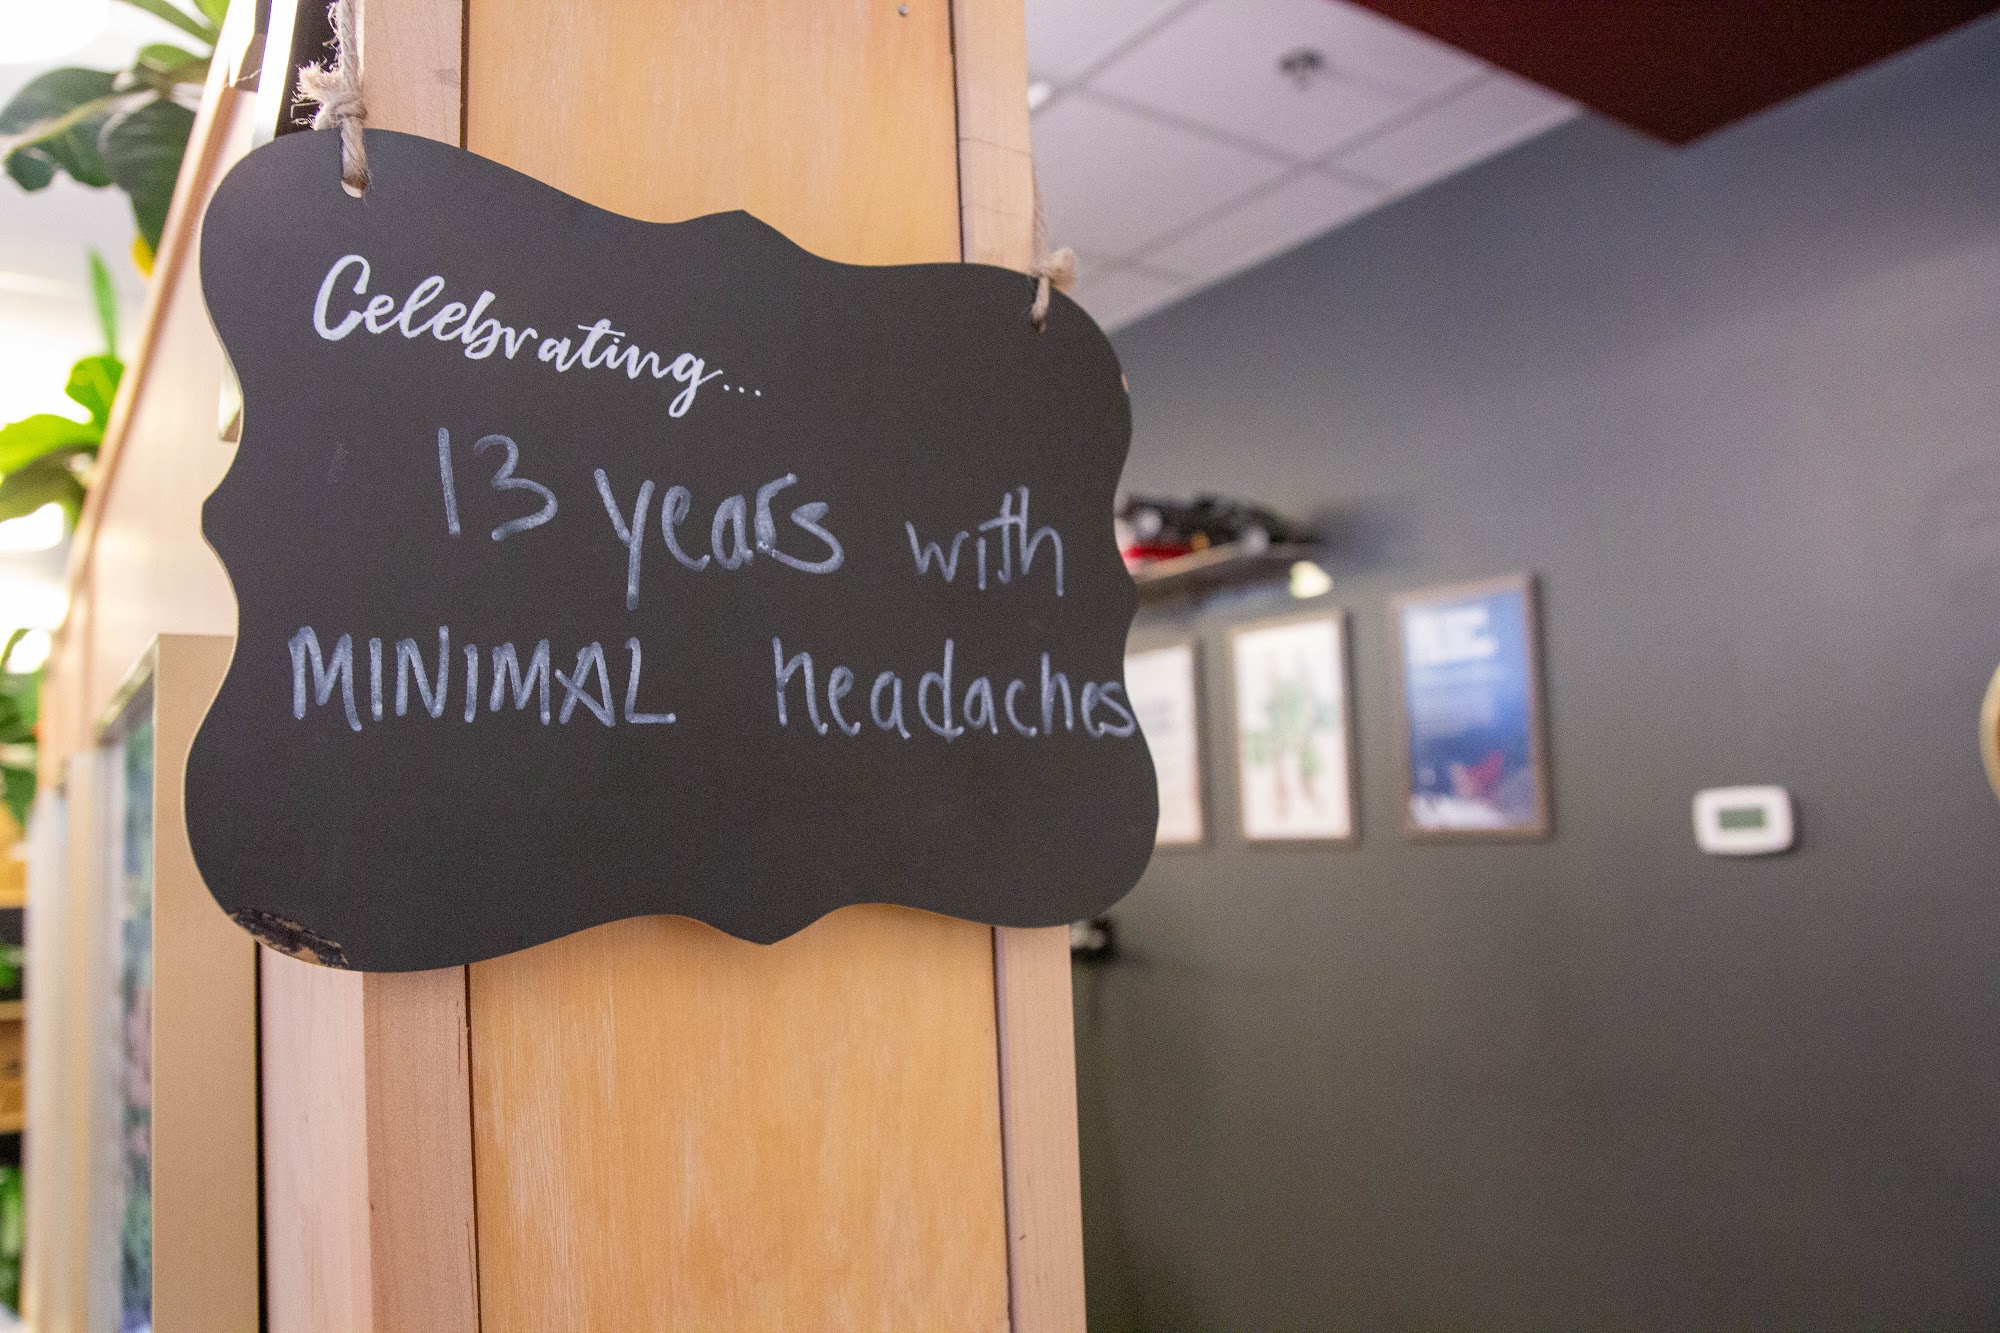 Celebrating...
13 years with
MINIMAL headaches